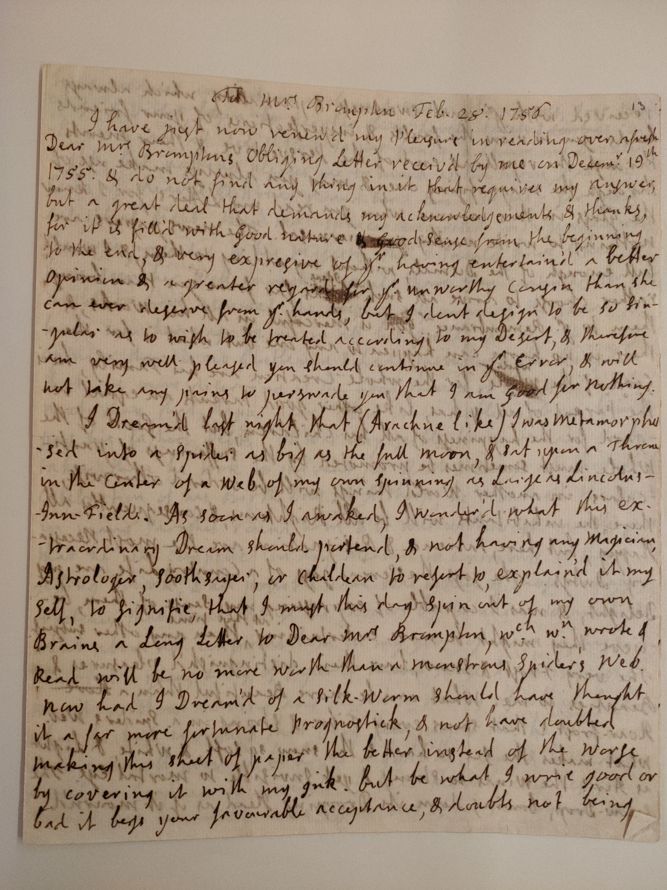 13
Mrs. Brampton Feb. 28. 1756
I have just now renew'd my Pleasure in reading over afresh
Dear Mrs Bramptons Obliging Letter receiv'd by me on Decemr. 19th
1755. & do not find any thing in it that requires my answer,
but a great deal that demands my acknowledgements & thanks,
for it is fill'd with Good nature & Good sense from the beginning
to the end, & very expressive of yr. having entertain'd a better
opinion & a greater regard for yr. unworthy Cousin than she
can ever deserve from yr. hands, but I don't design to be so sin-
-gular as to wish to be treated according to my Desert, & therefore
am very well pleased you should continue in yr. Error, & will
not take any pains to perswade you that I am Good for nothing.
I Dream'd last night that (Arachne like) I was metamorpho
-sed into a Spider as big as the full moon, & sat upon a Throne
in the Center of a Web of my own Spinning as Large as Lincolns-
-Inn-Fields. As soon as I awaked, I wonder'd what this ex-
-traordinary Dream should portend, & not having any Magician,
Astrologer, Soothsayer, or Chaldean to resort to, explain'd it my
self, to signifie, that I must this day spin out of my own
Brains a Long Letter to Dear Mrs Brampton, wch. wn. wrote &
Read will be no more worth than a monstrous Spider's Web.
now had I Dream'd of a Silk-Worm should have thought
it a far more fortunate Prognostick, & not have doubted
making this sheet of paper the better instead of the worse
by covering it with my Ink. but be what I write good or
bad it begs your favourable acceptance, & doubts not being